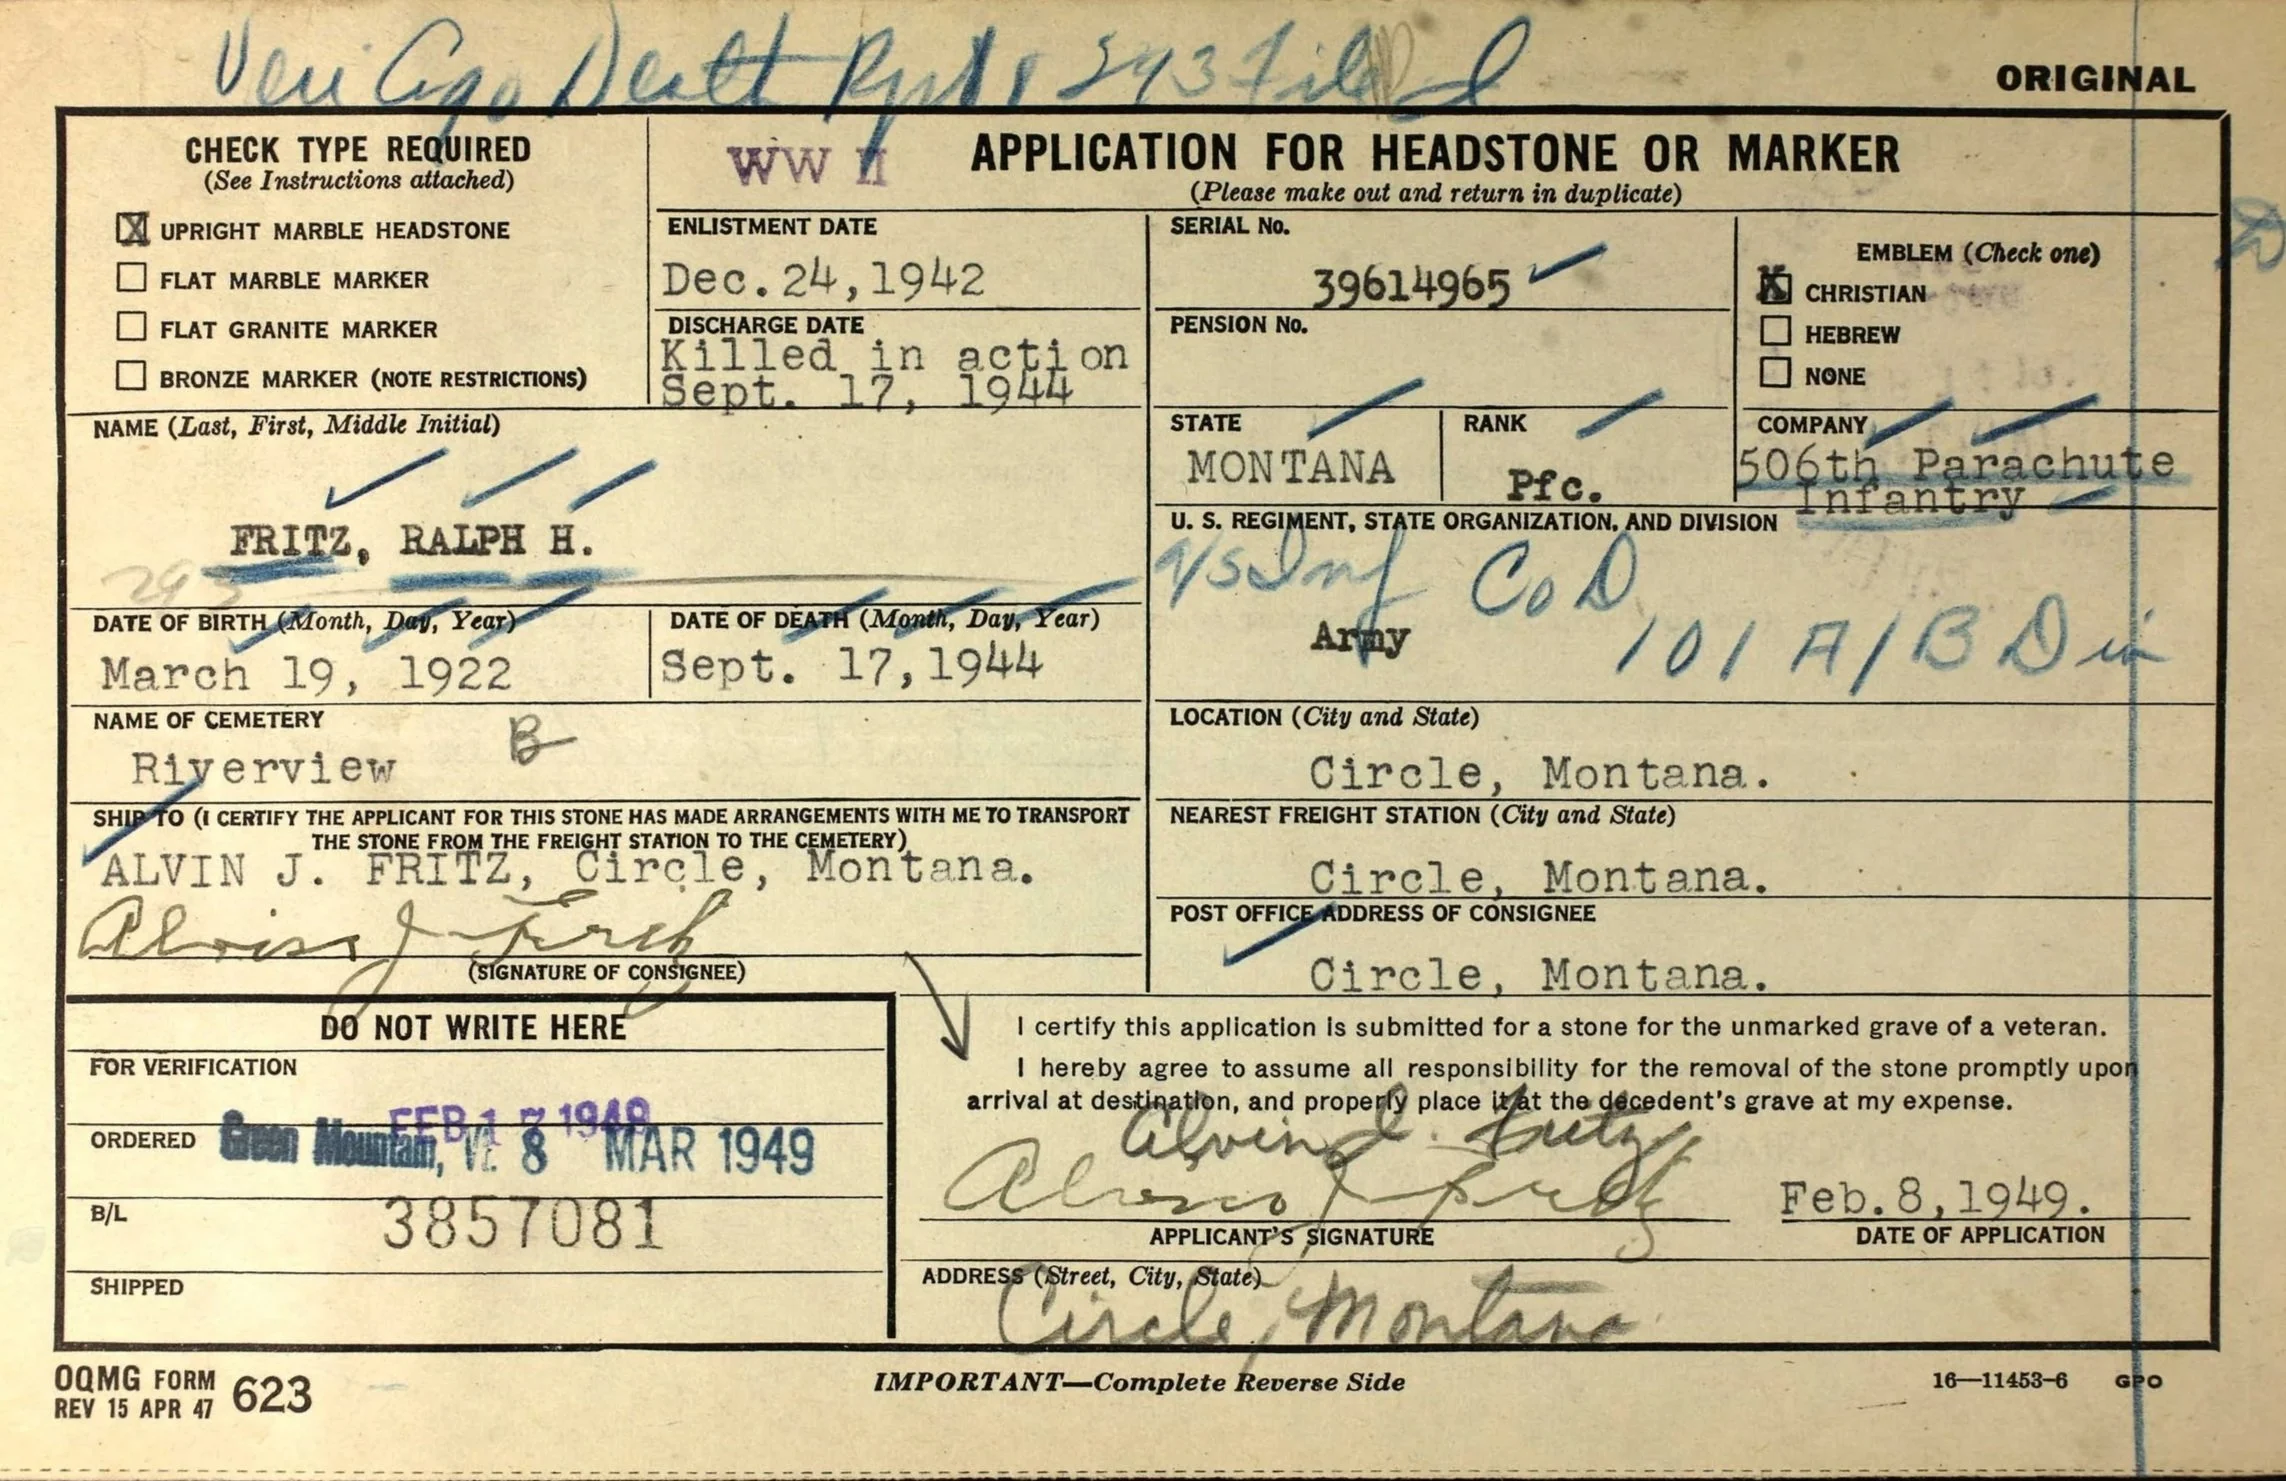 Veri Cqo Death Rpt & 293 Filed
ORIGINAL
CHECK TYPE REQUIRED
(See Instructions attached)
X UPRIGHT MARBLE HEADSTONE
FLAT MARBLE MARKER
FLAT GRANITE MARKER
BRONZE MARKER (NOTE RESTRICTIONS)
WW II
APPLICATION FOR HEADSTONE OR MARKER
(Please make out and return in duplicate)
ENLISTMENT DATE
Dec. 24, 1942
DISCHARGE DATE
Killed in action
Sept. 17, 1944
SERIAL No.
39614965
PENSION No.
EMBLEM (Check one)
X CHRISTIAN
HEBREW
NONE
NAME (Last, First, Middle Initial)
FRITZ, RALPH H.
293
STATE
MONTANA
RANK
Pfc.
COMPANY
506th Parachute
Infantry
U. S. REGIMENT, STATE ORGANIZATION, AND DIVISION
Inf Co D
Army
101 A/B Div
DATE OF BIRTH (Month, Day, Year)
March 19, 1922
DATE OF DEATH (Month, Day, Year)
Sept. 17, 1944
NAME OF CEMETERY
Riverview B
LOCATION (City and State)
Circle, Montana.
SHIP TO (I CERTIFY THE APPLICANT FOR THIS STONE HAS MADE ARRANGEMENTS WITH ME TO TRANSPORT
THE STONE FROM THE FREIGHT STATION TO THE CEMETERY)
ALVIN J. FRITZ, Circle, Montana.
Alvin J. Fritz
(SIGNATURE OF CONSIGNEE)
NEAREST FREIGHT STATION (City and State)
Circle, Montana.
POST OFFICE ADDRESS OF CONSIGNEE
Circle, Montana.
DO NOT WRITE HERE
FOR VERIFICATION
FEB 17 1949
ORDERED Green Mountain, Vt. 8 MAR 1949
B/L
3857081
SHIPPED
I certify this application is submitted for a stone for the unmarked grave of a veteran.
I hereby agree to assume all responsibility for the removal of the stone promptly upon
arrival at destination, and properly place it at the decedent's grave at my expense.
Alvin J. Fritz
Alvin J Fritz
Feb. 8, 1949.
APPLICANT'S SIGNATURE
DATE OF APPLICATION
ADDRESS (Street, City, State)
Circle, Montana
OQMG FORM 623
REV 15 APR 47
IMPORTANT—Complete Reverse Side
16—11453-6 GPO